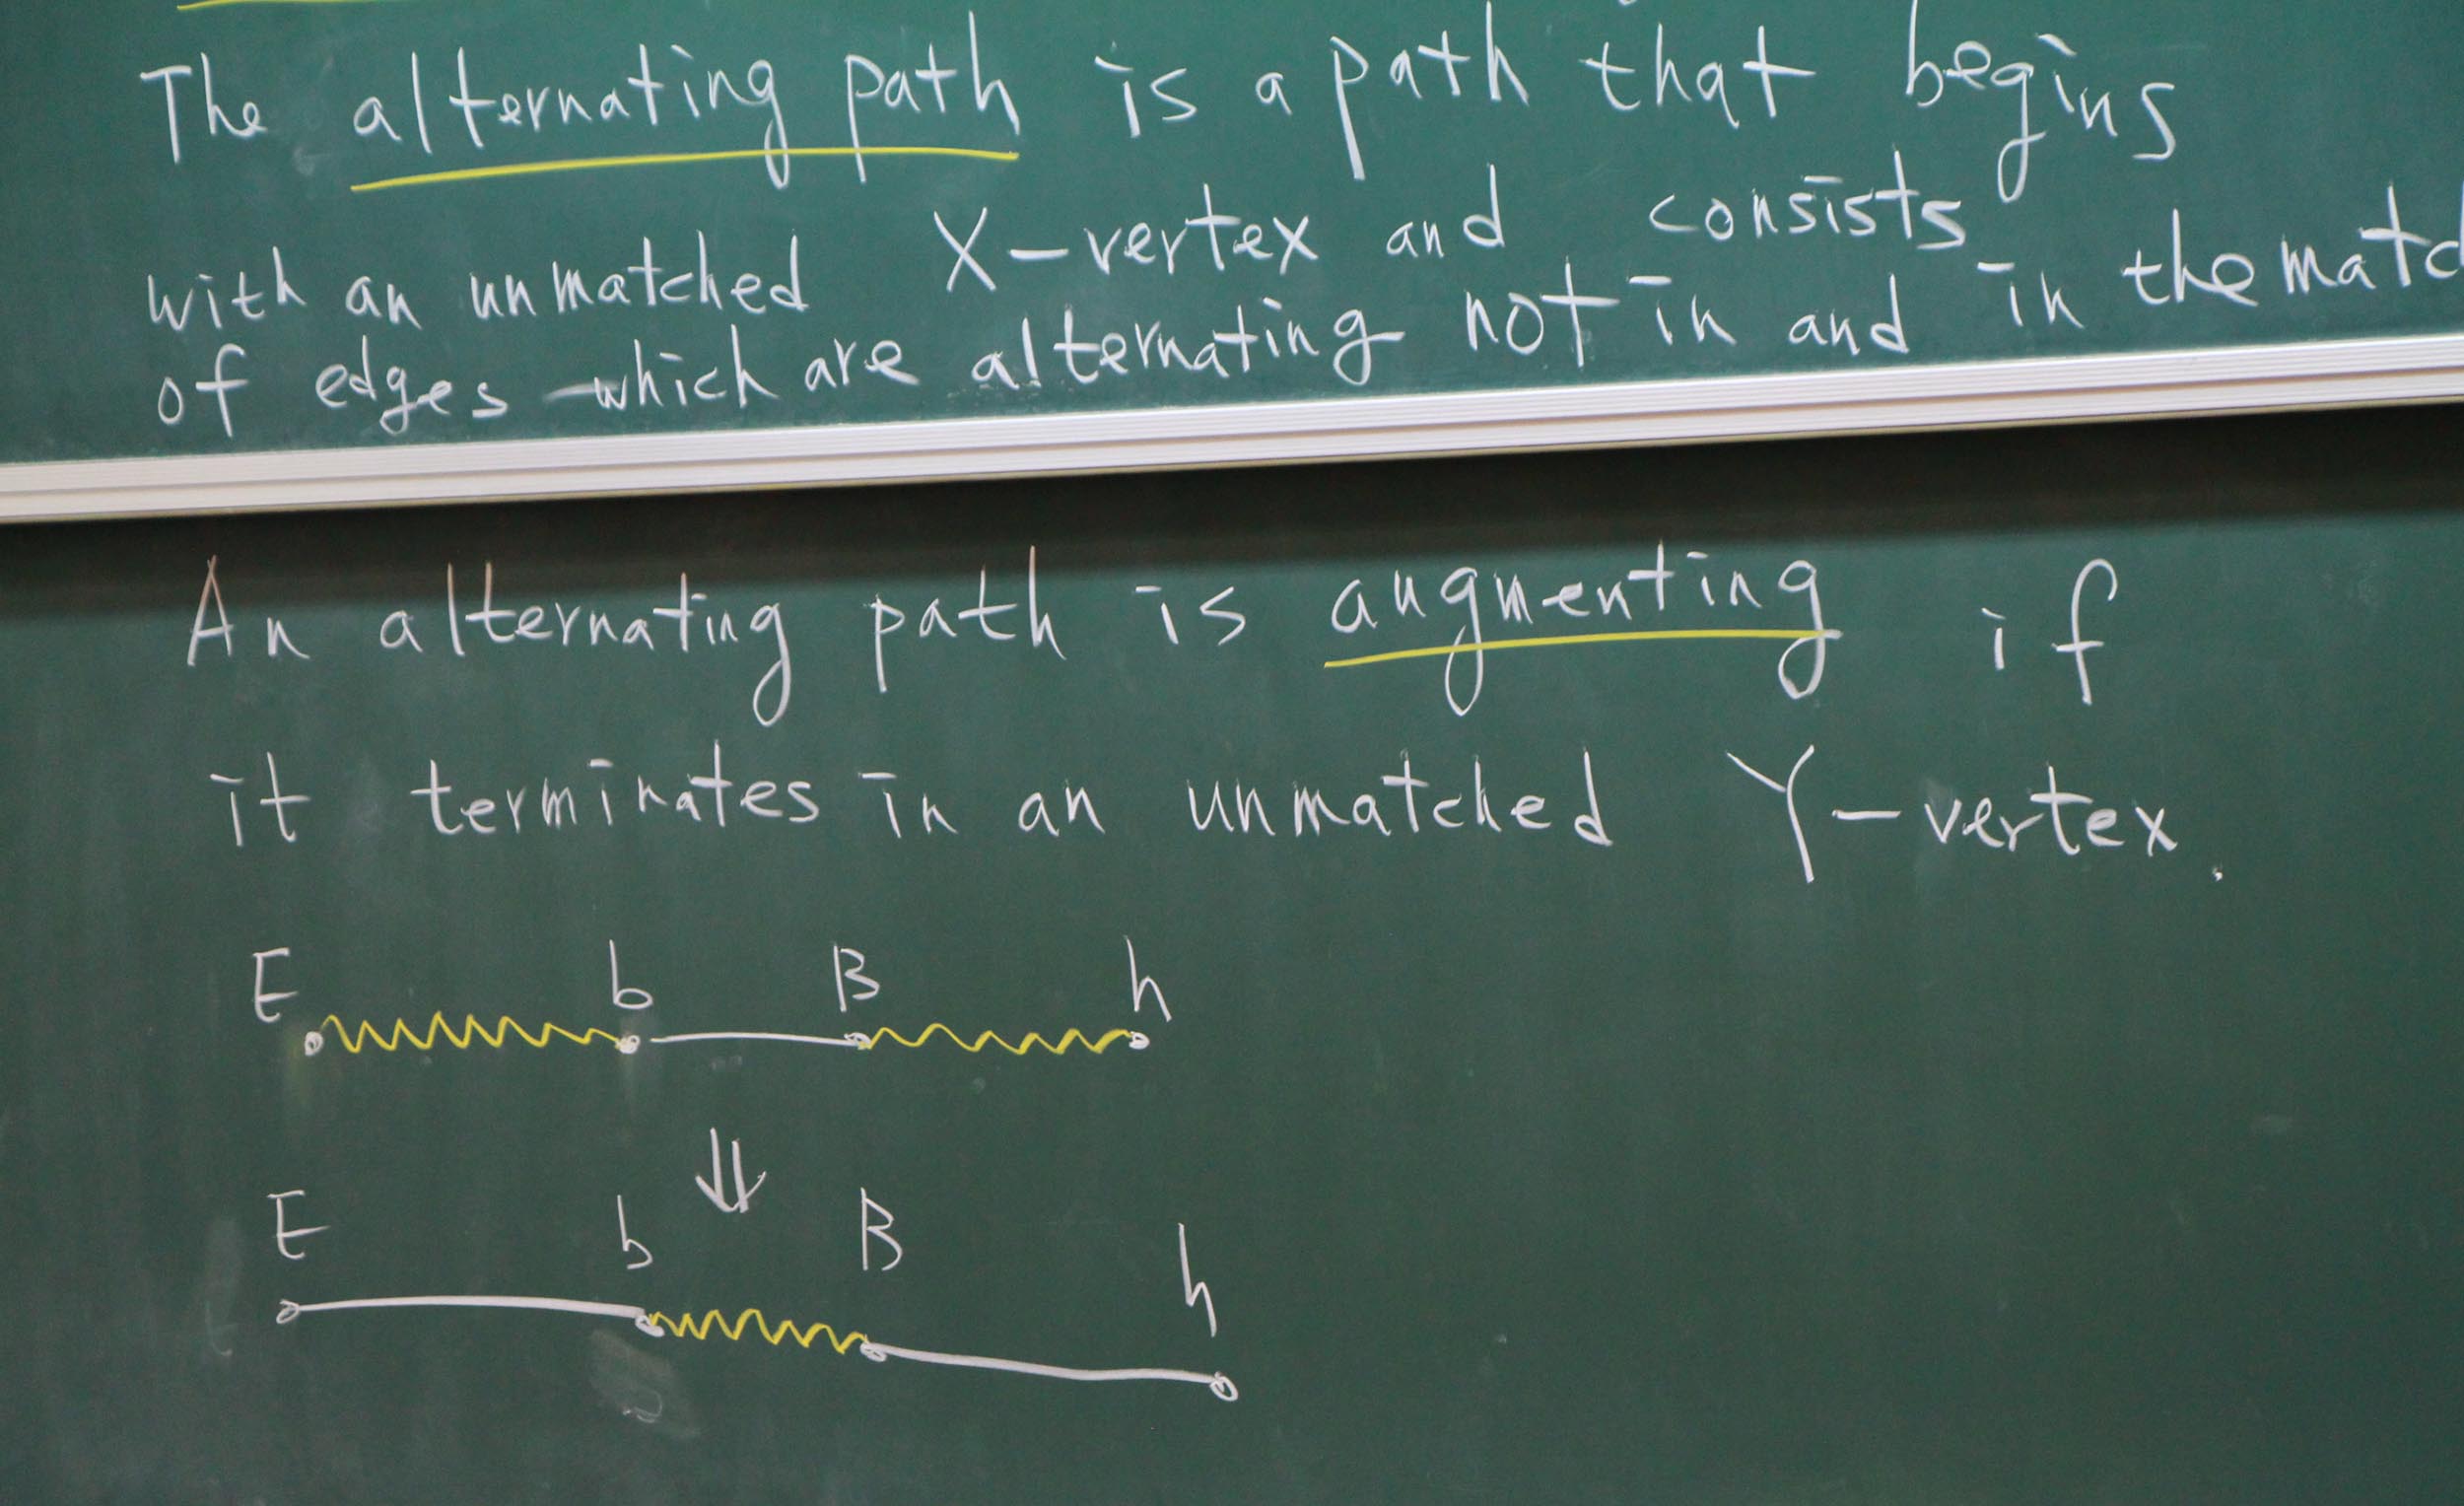 The alternating path is a path that begins
with an unmatched X-vertex and consists
of edges which are alternating not in and in the matc
An alternating path is augmenting if
it terminates in an unmatched Y-vertex.
E b B h
⇓
E b B h